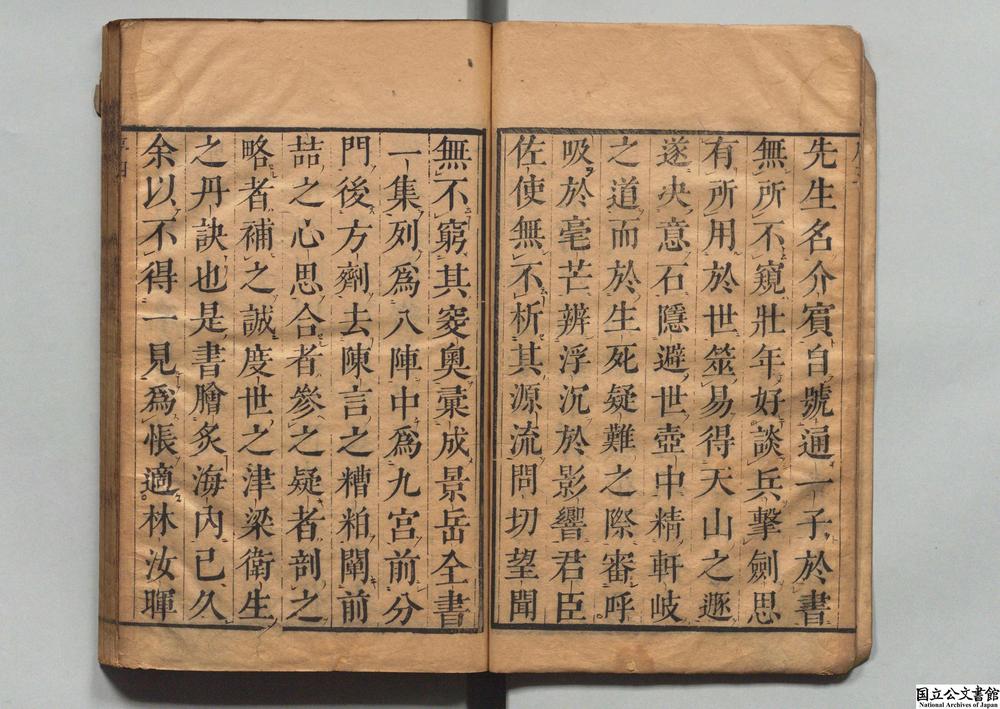 先生名介賓自號通一子於書
無所不窺壯年好談兵擊劍思
有所用於世筮易得天山之遯
遂决意石隱避世壺中精軒岐
之道而於生死疑難之際審呼
吸於毫芒辨浮沉於影響君臣
佐使無不析其源流問切望聞
無不窮其窔奧彙成景岳全書
一集列爲八陣中爲九宫前分
門後方劑去陳言之糟粕闡前
喆之心思合者參之疑者剖之
略者補之誠度世之津梁衛生
之丹訣也是書膾炙海内已久
余以不得一見爲悵適林汝暉
国立公文書館
National Archives of Japan